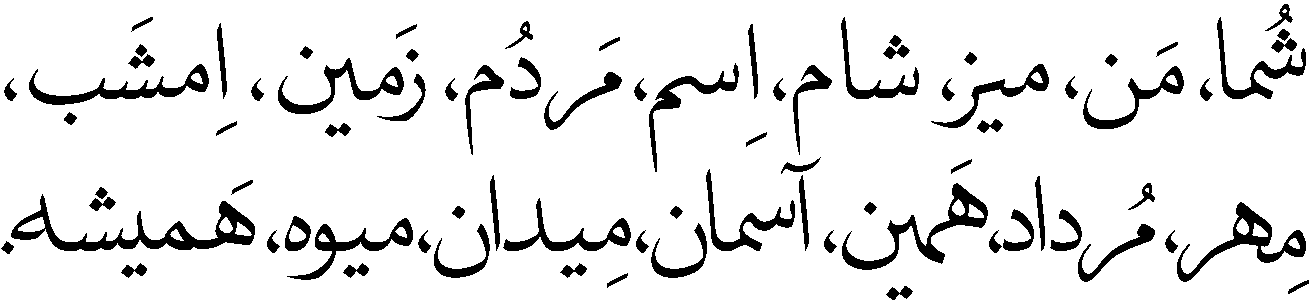 شُما، مَن، میز، شام، اِسم، مَردُم، زَمین، اِمشَب،
مِهر، مُرداد، هَمین، آسمان، مِیدان، میوه، هَمیشه.